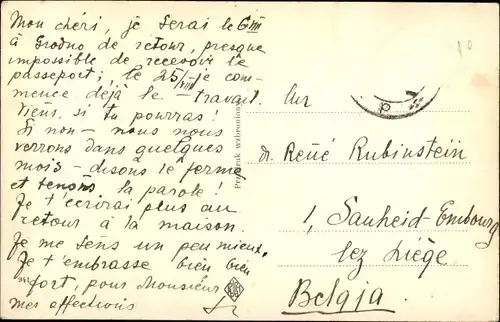 Mon chéri, je serai le 6/VIII
à Grodno de retour, presque
impossible de recevoir le
passeport; le 25/VIII je com-
mence déjà le - travail.
Viens, si tu pourras!
Si non - nous nous
verrons dans quelques
mois - disons le ferme
et tenons la parole!
Je t'écrirai plus au
retour à la maison.
Je me sens un peu mieux,
Je t'embrasse bien bien
fort, pour Monsieur
mes affections
Przedruk wzbroniony
Dr. René Rubinstein
1, Sauheid-Embourg
lez Liège
Belgja.